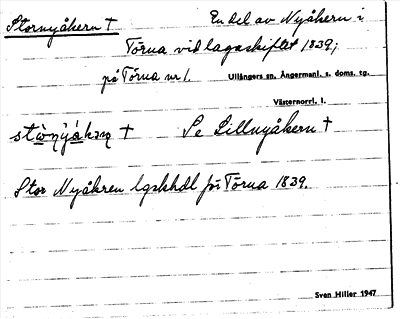 Stornyåkern † En del av Nyåkern i
Törna vid lagaskiftet 1839;
på Törna nr 1. Ullångers sn, Ångermanl. s. doms. tg.
Västernorrl. l.
† Se Lillnyåkern †
Stor Nyåkren lgskhdl för Törna 1839.
Sven Hiller 1947